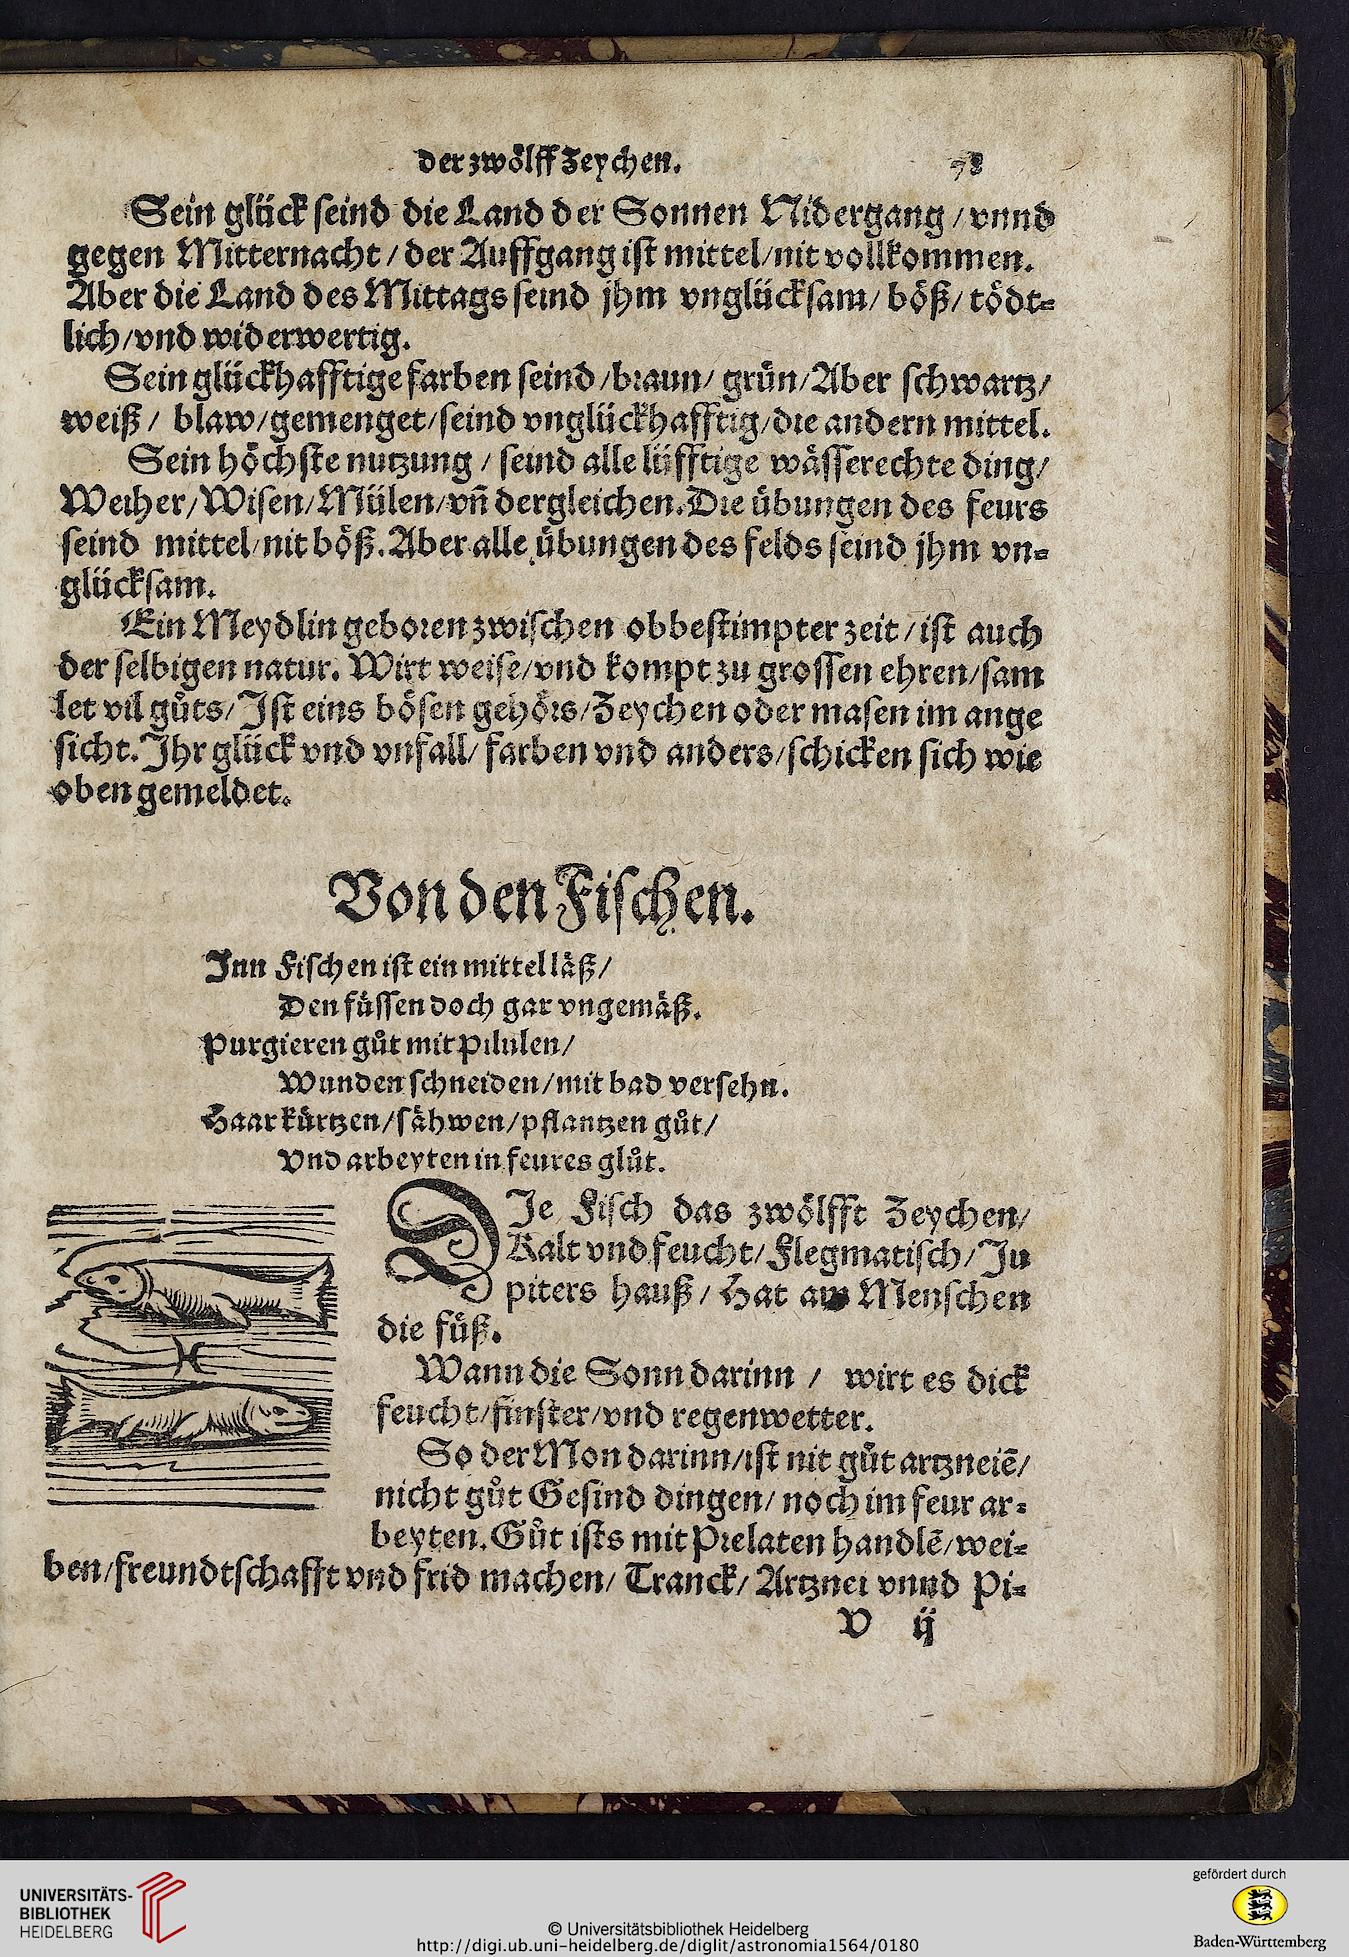 der zwölff Zeychen. 78
Sein glück seind die Land der Sonnen Nidergang / vnnd
gegen Mitternacht / der Auffgang ist mittel / nit vollkommen.
Aber die Land des Mittags seind jhm vnglücksam / böß / tödt⸗
lich / vnd widerwertig.
Sein glückhafftige farben seind / braun / grün / Aber schwartz /
weiß / blaw / gemenget / seind vnglückhafftig / die andern mittel.
Sein höchste nutzung / seind alle lüfftige wässerechte ding /
Weiher / Wisen / Mülen / vn̄ dergleichen. Die übungen des feurs
seind mittel / nit böß. Aber alle übungen des felds seind jhm vn⸗
glücksam.
Ein Meydlin geboren zwischen obbestimpter zeit / ist auch
der selbigen natur. Wirt weise / vnd kompt zu grossen ehren / sam
let vil gůts / Ist eins bösen gehörs / Zeychen oder masen im ange
sicht. Ihr glück vnd vnfall / farben vnd anders / schicken sich wie
oben gemeldet.
Von den Fischen.
Inn Fischen ist ein mittel läß /
Den füssen doch gar vngemäß.
Purgieren gůt mit Pilulen /
Wunden schneiden / mit bad versehn.
Haar kürtzen / sähwen / pflantzen gůt /
Vnd arbeyten in feures glůt.
DIe Fisch das zwölfft Zeychen /
Kalt vnd feucht / Flegmatisch / Ju
piters hauß / Hat am Menschen
die füß.
Wann die Sonn darinn / wirt es dick
feucht / finster / vnd regenwetter.
So der Mon darinn / ist nit gůt artzneiē /
nicht gůt Gesind dingen / noch im feur ar⸗
beyten. Gůt ists mit Prelaten handlē / wei⸗
ben / freundtschafft vnd frid machen / Tranck / Artznei vnnd Pi⸗
V ij
UNIVERSITÄTS-
BIBLIOTHEK
HEIDELBERG
© Universitätsbibliothek Heidelberg
http://digi.ub.uni-heidelberg.de/diglit/astronomia1564/0180
gefördert durch
Baden-Württemberg